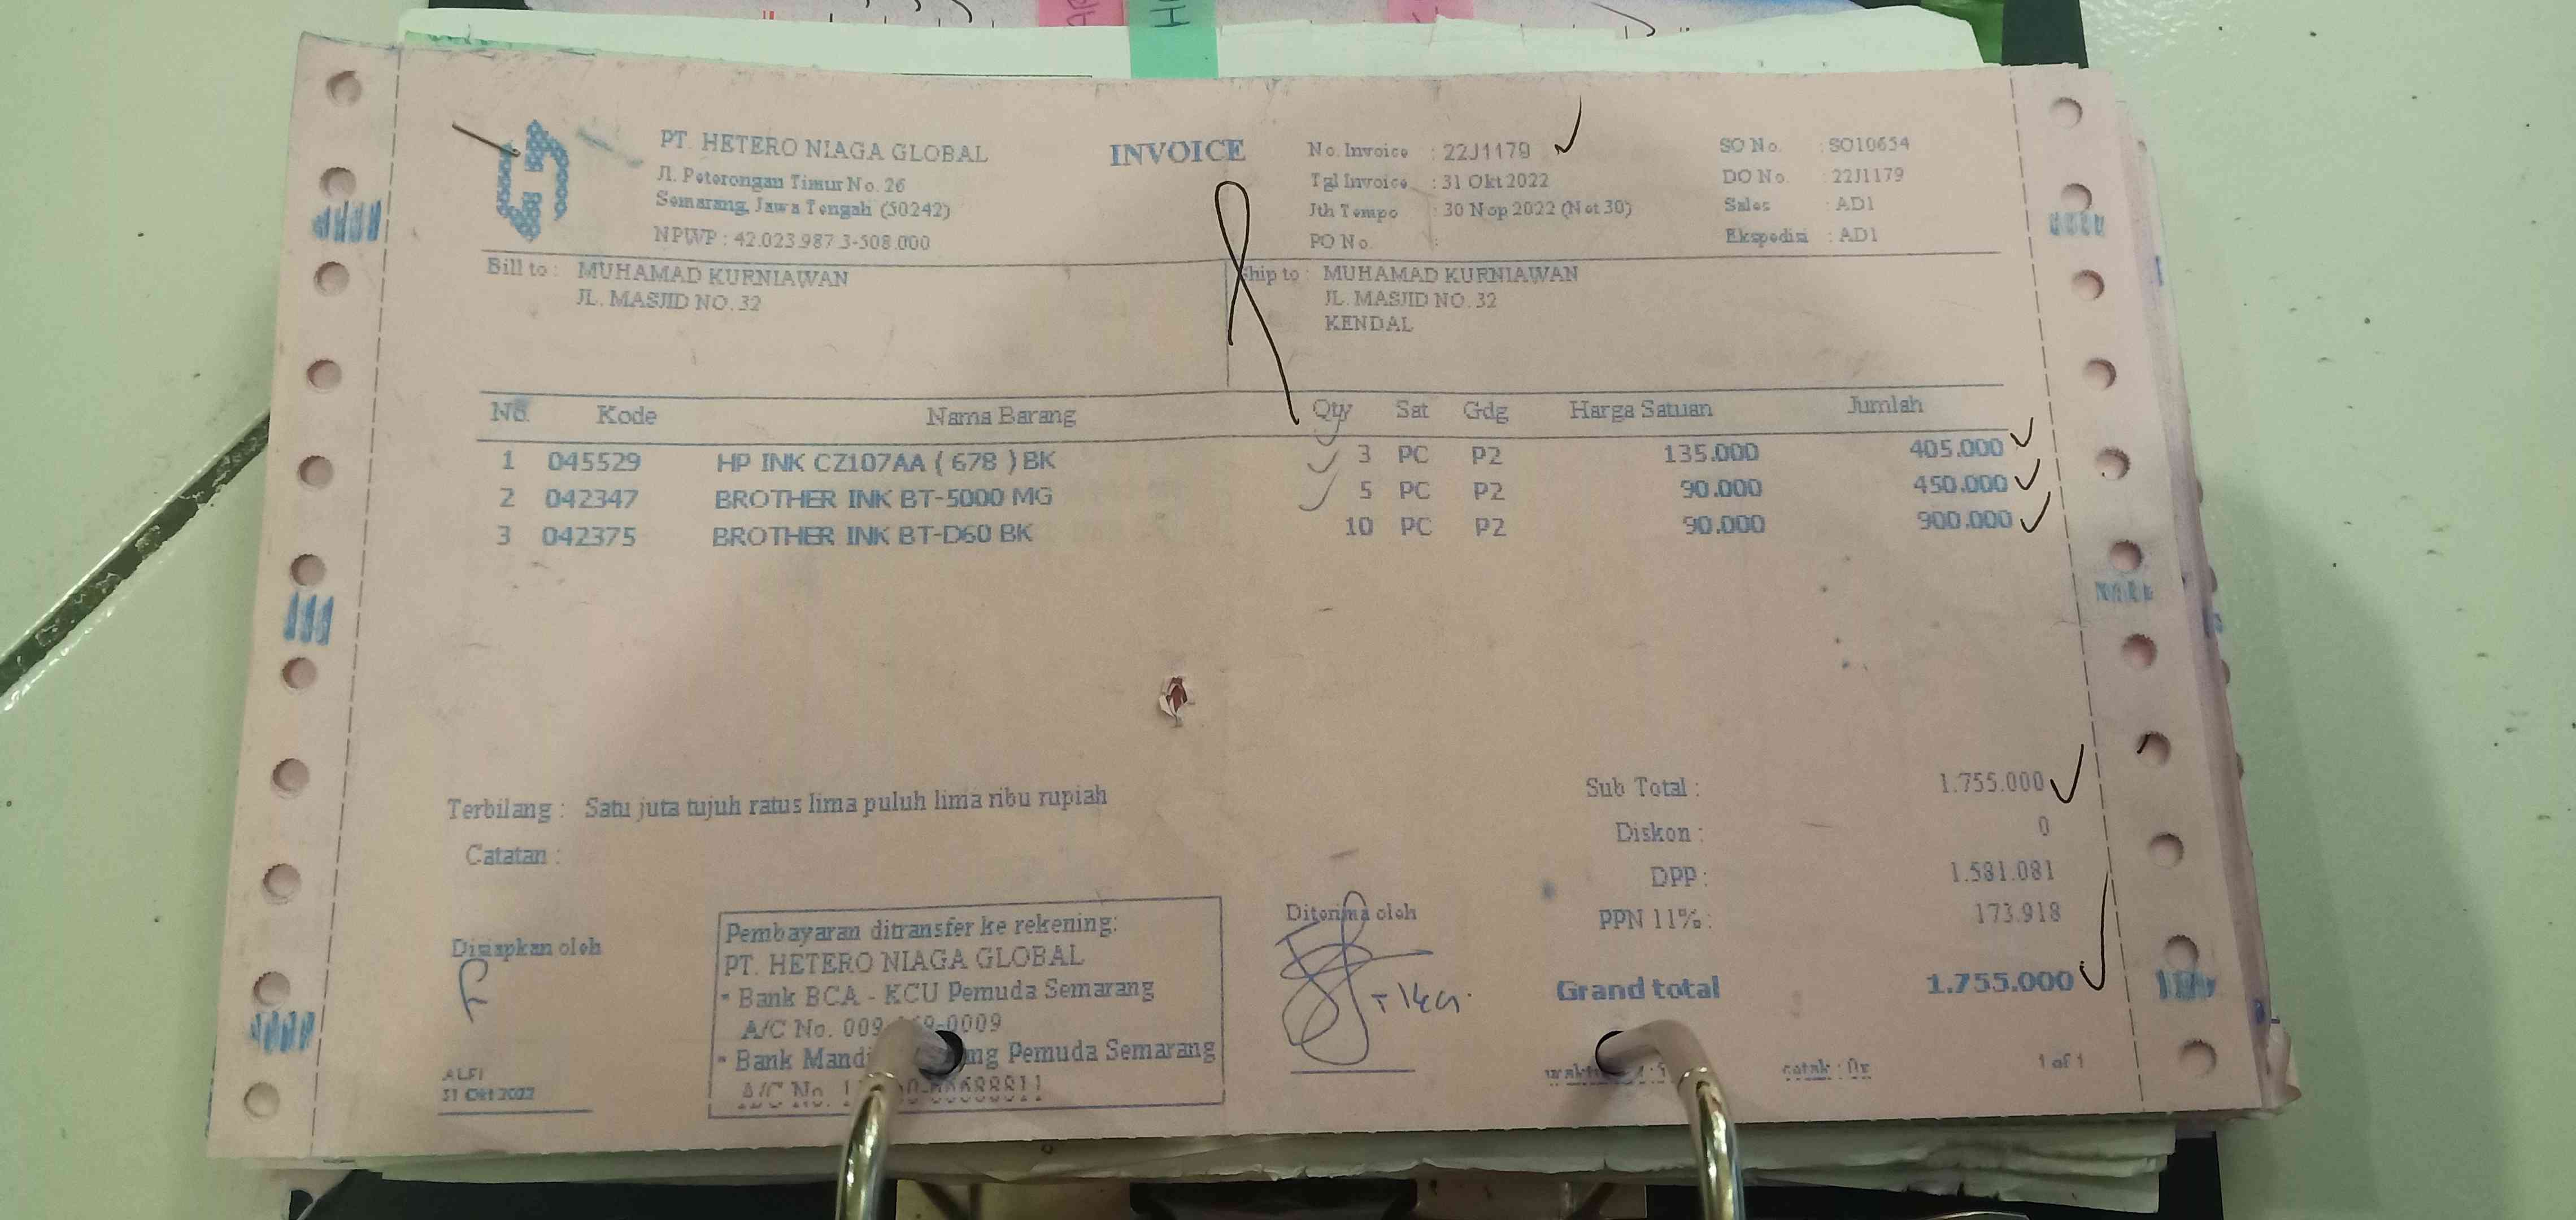 PT. HETERO NIAGA GLOBAL
Jl. Peterongan Timur No. 26
Semarang, Jawa Tengah (50242)
NPWP : 42.023.987.3-508.000
INVOICE
No. Invoice : 22J1179
Tgl Invoice : 31 Okt 2022
Jth Tempo : 30 Nop 2022 (Net 30)
PO No. :
SO No. : SO10654
DO No. : 22J1179
Sales : AD1
Ekspedisi : AD1
Bill to : MUHAMAD KURNIAWAN
JL. MASJID NO. 32
Ship to : MUHAMAD KURNIAWAN
JL. MASJID NO. 32
KENDAL
No. Kode Nama Barang Qty Sat Gdg Harga Satuan Jumlah
1 045529 HP INK CZ107AA ( 678 ) BK 3 PC P2 135.000 405.000
2 042347 BROTHER INK BT-5000 MG 5 PC P2 90.000 450.000
3 042375 BROTHER INK BT-D60 BK 10 PC P2 90.000 900.000
Terbilang : Satu juta tujuh ratus lima puluh lima ribu rupiah
Catatan :
Sub Total : 1.755.000
Diskon : 0
DPP : 1.581.081
PPN 11% : 173.918
Grand total 1.755.000
Disiapkan oleh
ALFI
31 Okt 2022
Pembayaran ditransfer ke rekening:
PT. HETERO NIAGA GLOBAL
- Bank BCA - KCU Pemuda Semarang
A/C No.
- Bank Pemuda Semarang
A/C No.
Diterima oleh
1 of 1